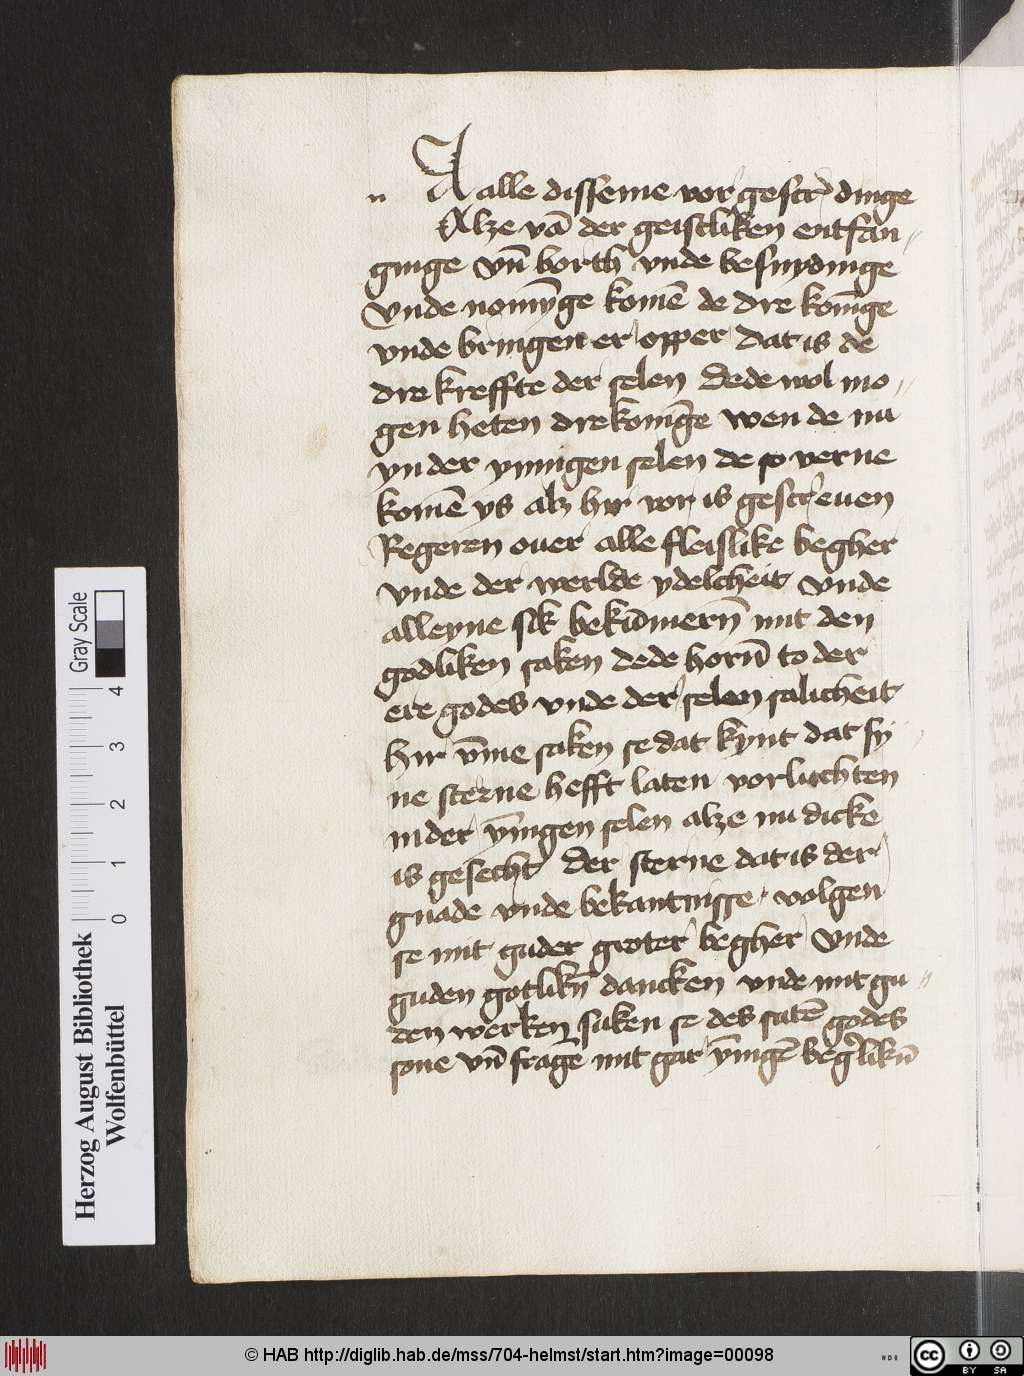 n A alle disseme vorgescr̄ dinge
Alze vā der geistliken entfan-
ginge vn̄ borth vnde besnydinge
vnde nomȳge komē de dre konīge
vnde bringen er opper Dat is de
dre kreffte der selen Dede wol mo-
gen heten dre konīge wen de nu
yn der ynnigen selen de so verne
komē ys alz hir vor is gescreuen
Regeren ouer alle fleislike begher
vnde der werlde ydelcheit vnde
alleyne sik bekūmern̄ mit den
godliken saken dede horn̄ to der
ere godes vnde der selen salicheit
hir vm̄e saken se dat kynt dat sy-
ne sterne hefft laten vorluchten
in der yn̄igen selen alze nu dicke
is gesecht Der sterne dat is der
gnade vnde bekantnisse volgen
se mit guder groter begher vnde
guden gotlikn̄ dancken vnde mit gu-
den werken suken se des saten godes
sone vn̄ fragē mit gar yn̄igē beg'likn̄
Gray Scale
4
3
2
1
0
Herzog August Bibliothek
Wolfenbüttel
© HAB http://diglib.hab.de/mss/704-helmst/start.htm?image=00098
cc BY SA